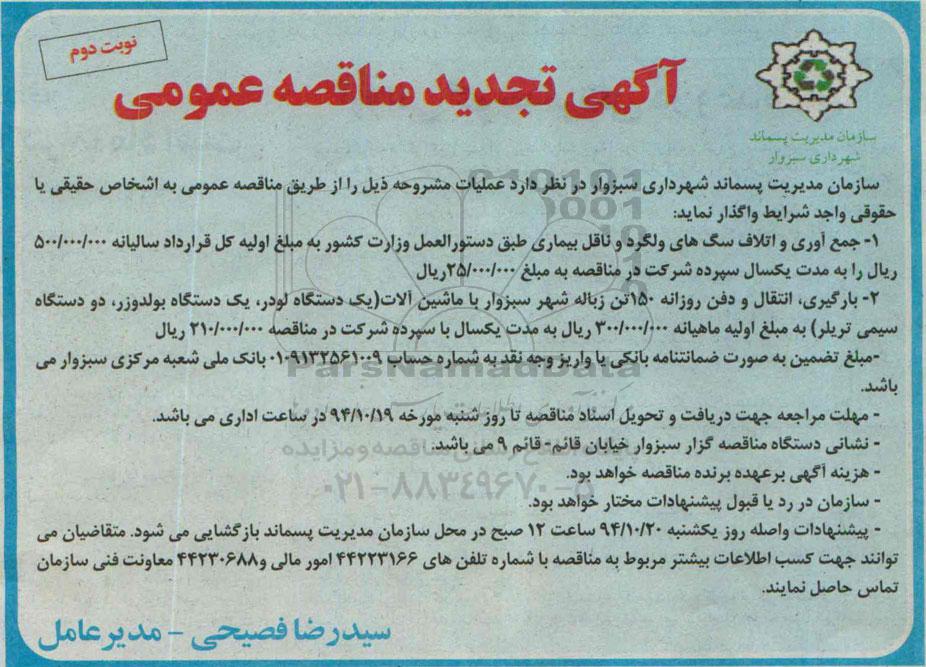 نوبت دوم
آگهی تجدید مناقصه عمومی
سازمان مدیریت پسماند
شهرداری سبزوار
سازمان مدیریت پسماند شهرداری سبزوار در نظر دارد عملیات مشروحه ذیل را از طریق مناقصه عمومی به اشخاص حقیقی یا
حقوقی واجد شرایط واگذار نماید:
۱- جمع آوری و اتلاف سگ های ولگرد و ناقل بیماری طبق دستورالعمل وزارت کشور به مبلغ اولیه کل قرارداد سالیانه ۵۰۰/۰۰۰/۰۰۰
ریال را به مدت یکسال سپرده شرکت در مناقصه به مبلغ ۲۵/۰۰۰/۰۰۰ریال
۲- بارگیری، انتقال و دفن روزانه ۱۵۰تن زباله شهر سبزوار با ماشین آلات(یک دستگاه لودر، یک دستگاه بولدوزر، دو دستگاه
سیمی تریلر) به مبلغ اولیه ماهیانه ۳۰۰/۰۰۰/۰۰۰ ریال به مدت یکسال با سپرده شرکت در مناقصه ۲۱۰/۰۰۰/۰۰۰ ریال
-مبلغ تضمین به صورت ضمانتنامه بانکی یا واریز وجه نقد به شماره حساب ۰۱۰۹۱۳۲۵۶۱۰۰۹ بانک ملی شعبه مرکزی سبزوار می
باشد.
- مهلت مراجعه جهت دریافت و تحویل اسناد مناقصه تا روز شنبه مورخه ۹۴/۱۰/۱۹ در ساعت اداری می باشد.
- نشانی دستگاه مناقصه گزار سبزوار خیابان قائم- قائم ۹ می باشد.
- هزینه آگهی برعهده برنده مناقصه خواهد بود.
- سازمان در رد یا قبول پیشنهادات مختار خواهد بود.
- پیشنهادات واصله روز یکشنبه ۹۴/۱۰/۲۰ ساعت ۱۲ صبح در محل سازمان مدیریت پسماند بازگشایی می شود. متقاضیان می
توانند جهت کسب اطلاعات بیشتر مربوط به مناقصه با شماره تلفن های ۴۴۲۲۳۱۶۶ امور مالی و۴۴۲۳۰۶۸۸ معاونت فنی سازمان
تماس حاصل نمایند.
سیدرضا فصیحی - مدیرعامل
ParsNamadData
۰۲۱-۸۸۳۴۹۶۷۰-۵